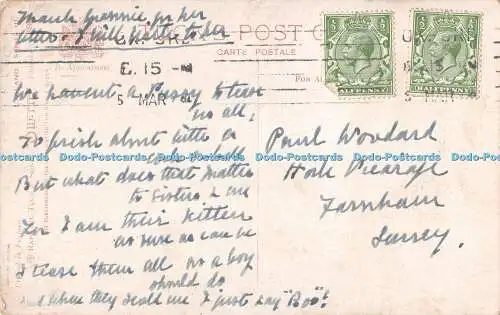 Thank Grannie for her
letter. I will write to her
POST C
CARTE POSTALE
OXFORD
E. 15
5 MAR
HALFPENNY
HALFPENNY
We havent a Pussy to tease
us all,
To prish about with a
ball
But what does that matter
to Sisters & me
For I am their kitten
as sure as can be
I tease them all as a boy
should do
And when they scold me I just say "Boo"!
Paul Woodard
Hole
Farnham
Surrey.
Dodo-Postcards Dodo-Postcards Dodo-Postcards Dodo-Postcards Dodo-Postcards Dodo-Postcards Dodo-Postcards